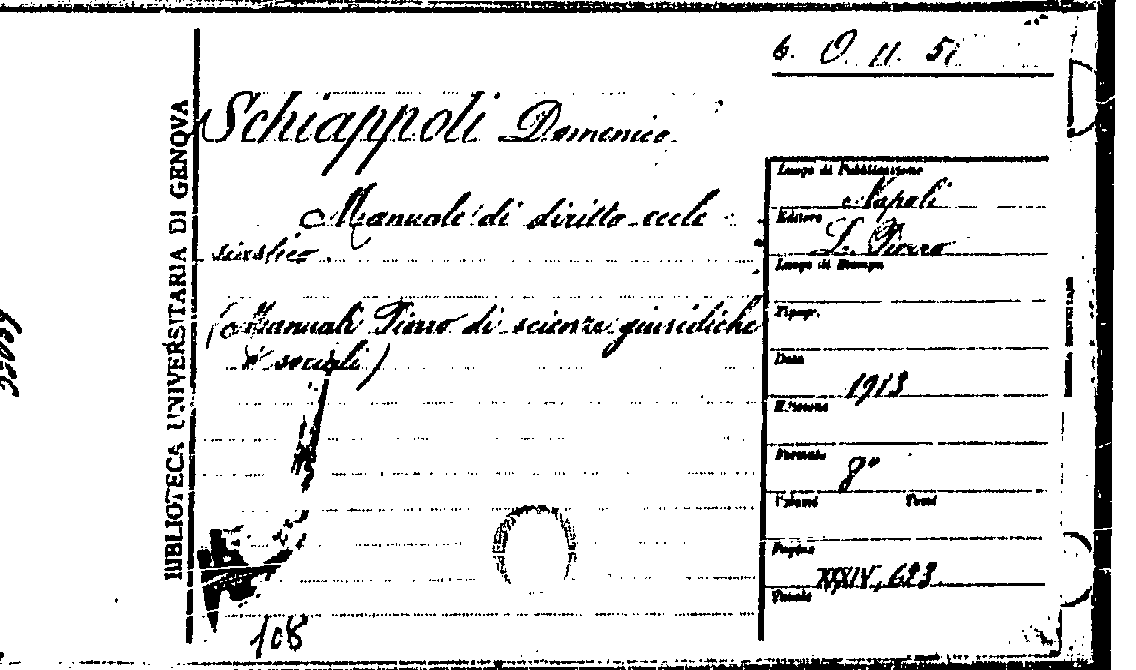 6. O. 11. 51
BIBLIOTECA UNIVERSITARIA DI GENOVA
Schiappoli Domenico
Manuale di diritto eccle
siastico.
(Manuali Pierro di scienze giuridiche
e sociali)
108
Luogo di Pubblicazione
Napoli
Editore
L. Pierro
Luogo di Stampa
Tipogr.
Data
1913
Edizione
Formato
8°
Volumi Tomi
Pagine
XXIV, 623
Tavole